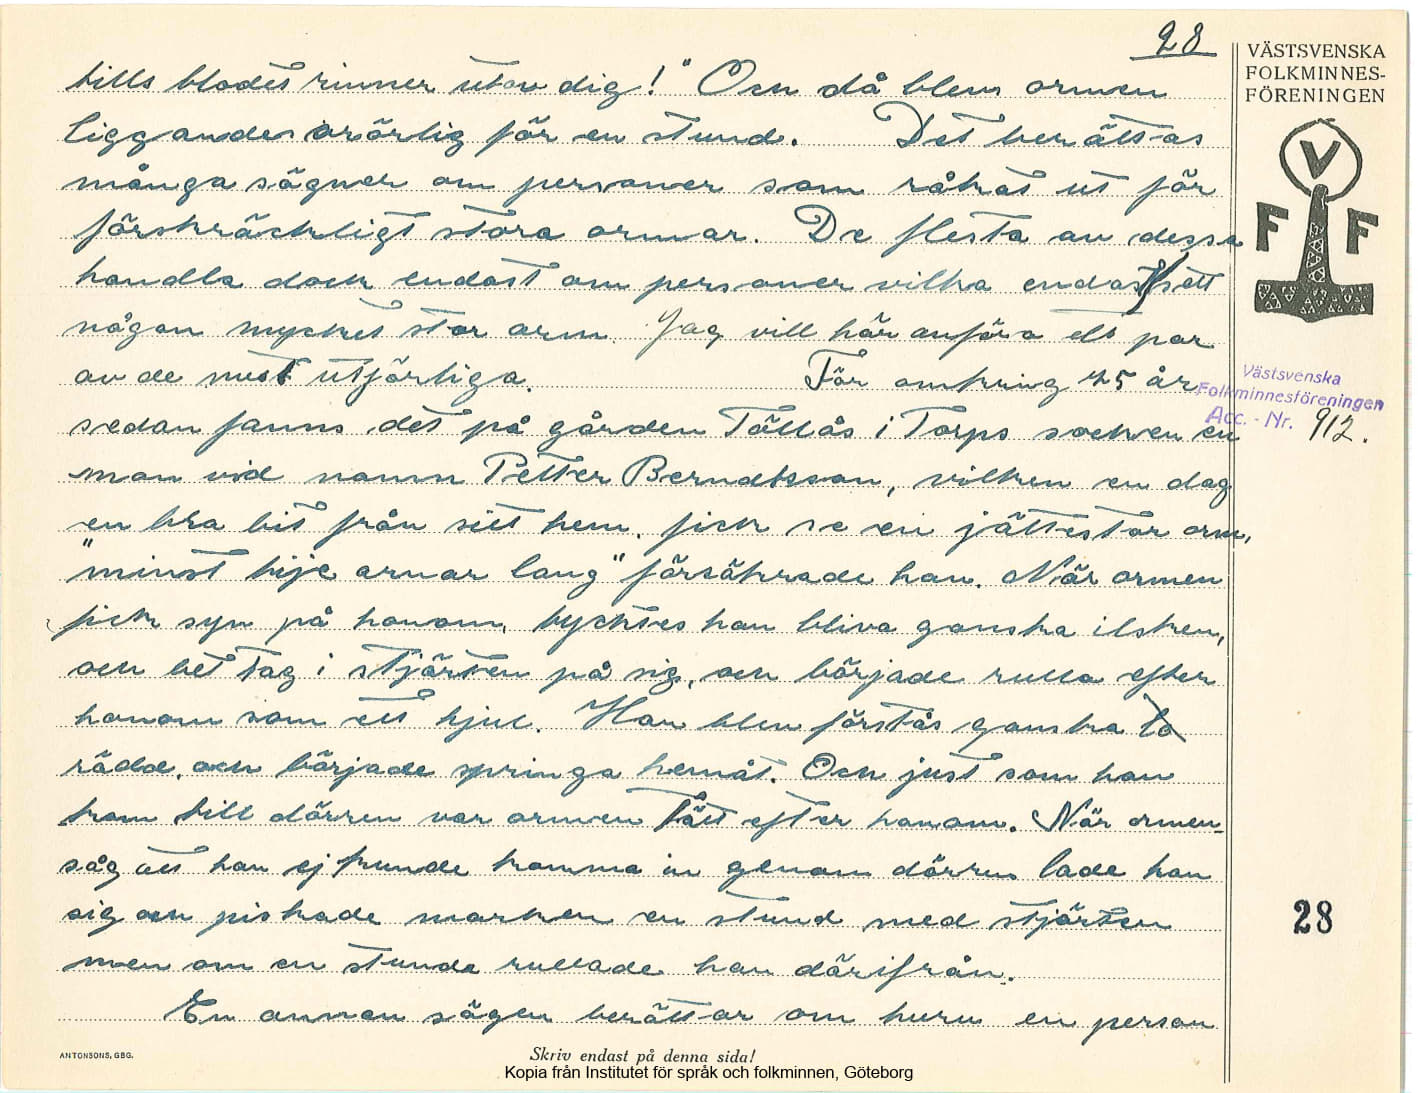 28
tills blodet rinner utav dig!" Och då blev ormen
liggandes orörlig för en stund. Det berättas
många sägner om personer som råkat ut för
förskräckligt stora ormar. De flesta av dessa
handla dock endast om personer vilka endast sett
någon mycket stor orm. Jag vill här anföra ett par
av de mest utförliga. För omkring 75 år
sedan fanns det på gården Tållås i Torps socken en
man vid namn Petter Berndtsson, vilken en dag
en bra bit från sitt hem, fick se en jättestor orm,
"minst tije arnar lang" försäkrade han. När ormen
fick syn på honom, tycktes han bliva ganska ilsken,
och bet tag i stjärten på sig, och började rulla efter
honom som ett hjul. Han blev förstås ganska to
rädd, och började springa hemåt. Och just som han
kom till dörren var ormen tätt efter honom. När ormen
såg att han ej kunde komma in genom dörren lade han
sig och piskade marken en stund med stjärten
men om en stunde rullade han därifrån.
En annan sägen berättar om huru en person
VÄSTSVENSKA
FOLKMINNES-
FÖRENINGEN
V
F F
Västsvenska
Folkminnesföreningen
Acc. - Nr. 912.
28
ANTONSONS, GBG.
Skriv endast på denna sida!
Kopia från Institutet för språk och folkminnen, Göteborg